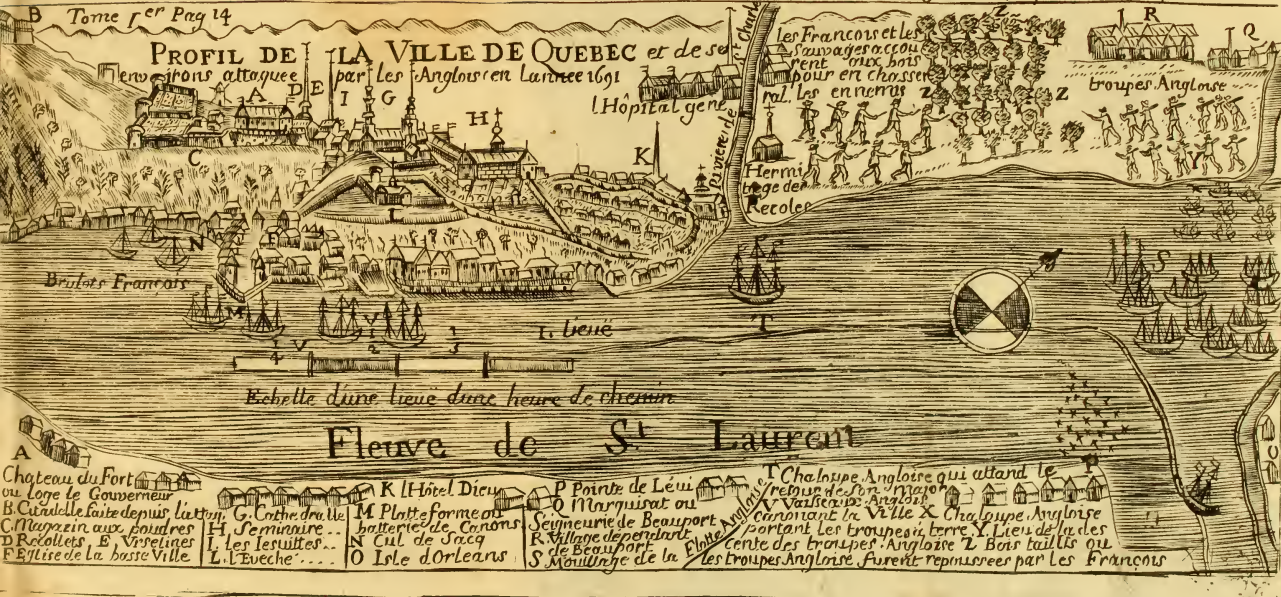 Tome I.er Pag 14
PROFIL DE LA VILLE DE QUEBEC et de se
environs attaquee par les Anglois en Lannee 1691
lHôpital gene
ral.
Riviere de St Charle
les Francois et les
Sauvages accou
rent aux bois
pour en chasser
les ennemis
troupes Angloise
Hermi
tage des
Recoles
Brulots François
1/4 1/2 3
1. lieuë
Echelle d'une lieuë dune heure de chemin
Fleuve de St Laurent
A
Chateau du Fort
ou loge le Gouverneur
B. Citadelle faite depuis, l'attaq
C. Magazin aux poudres
D Recollets, E, Urselines
F Eglise de la basse Ville
G. Cathedralle
H Seminaire..
I les Iesuittes..
L. l'Eveché....
K l Hôtel Dieu
M Platte forme ou
batterie de Canons
N Cul de Sacq
O Isle d'Orleans
P Pointe de Lévi
Q Marquisat ou
Seigneurie de Beauport
R. Village dependant
de Beauport
S Mouillage de la Flotte Angloise
T Chaloupe Angloise qui attand le
retour de Son Major
V Vaisseaux Anglois
Canonant la Ville X Chaloupe Angloise
portant les troupes à terre, Y. Lieu de la des
cente des troupes, Angloise Z Bois taillis ou
les troupes Angloise, furent repoussees par les François
B
A
D
E
I
G
H
K
C
L
F
N
M
V
V
T
S
P
R
Q
Y
Z
Z
Z
Z